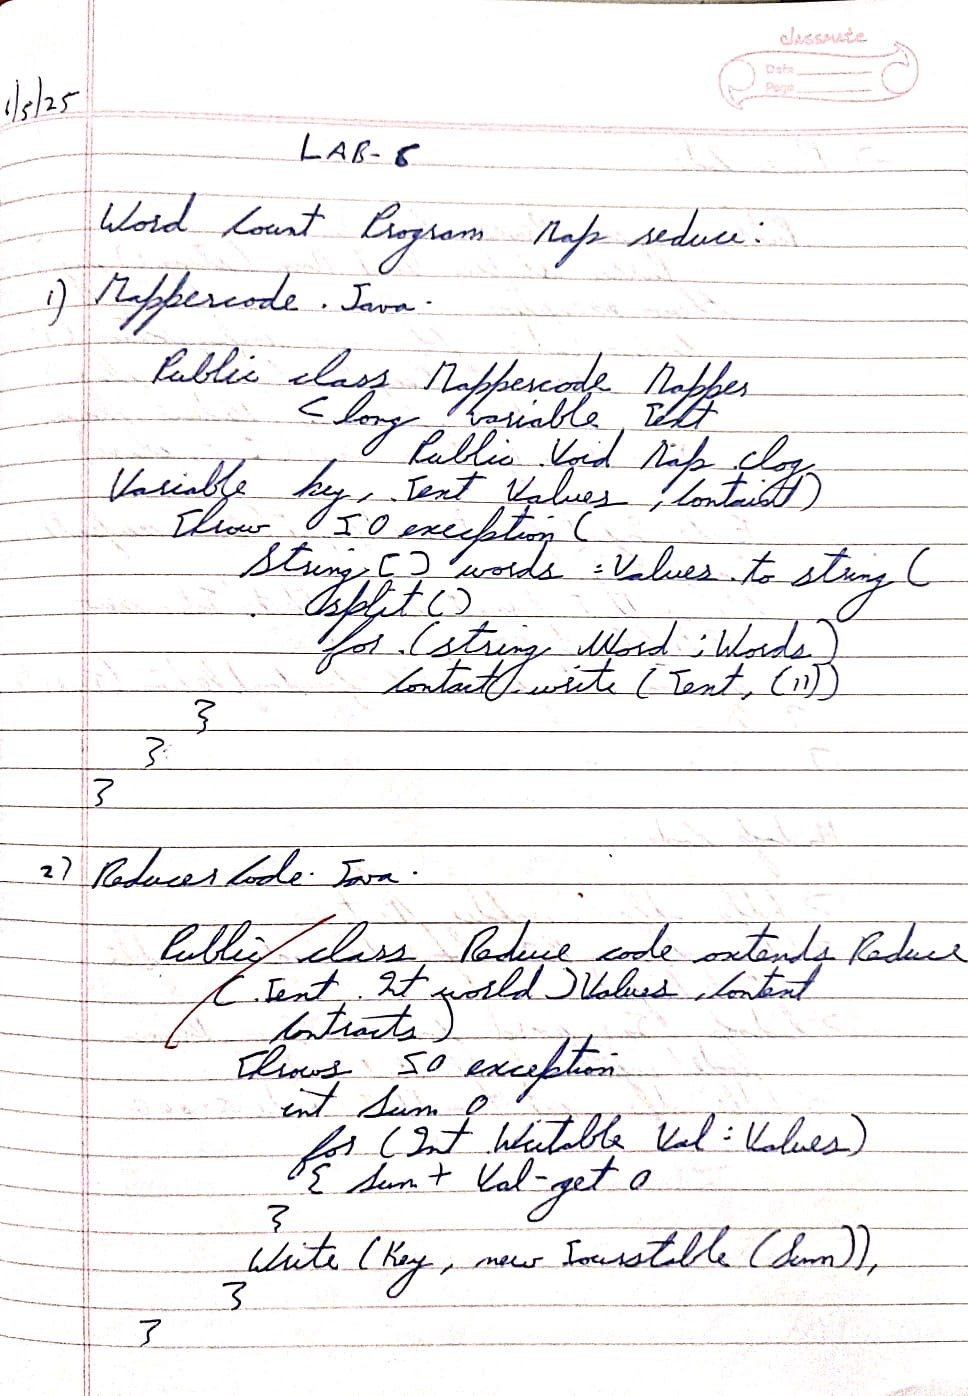 classmate
Date
Page
1/5/25
LAB- 8
Word Count Program Map reduce:
1) Mappercode . Java .
Public class Mappercode Mapper
< long variable, Text
Public Void Map clog
Variable key, Text Values , Contaist)
Throw IO exception (
String [] words = Values . to string (
split ()
for . (string Word : Words)
Contact . write ( Text, (11))
}
}
}
2) Reducer Code . Java .
Public class Reduce code extends Reduce
( . Text . It world ) Values , Content
Contracts )
Throws IO exception
int Sum 0
for ( Int Writable Val : Values )
{ Sum + Val - get 0
}
Write ( Key , new (Sum)),
}
}